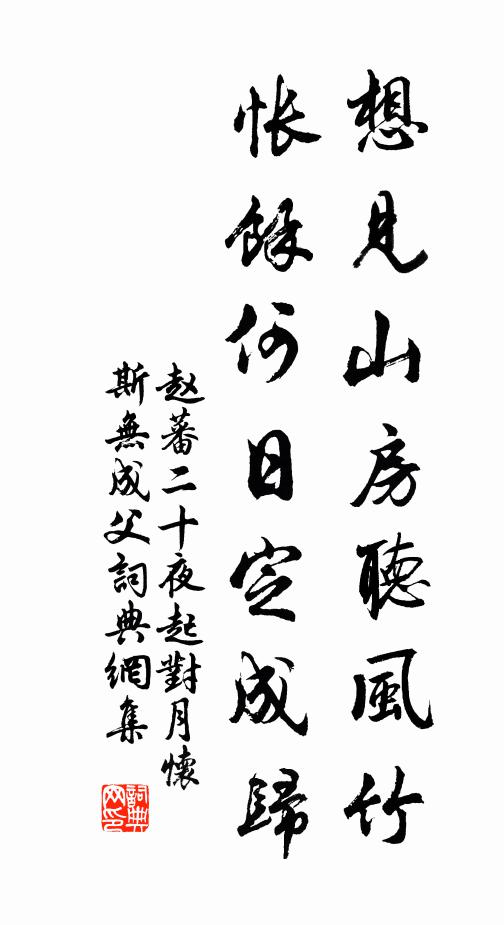 想見山房聽風竹
悵餘何日定成歸
赵蕃二十夜起對月懷
斯無成父詞典網集
詞典网印